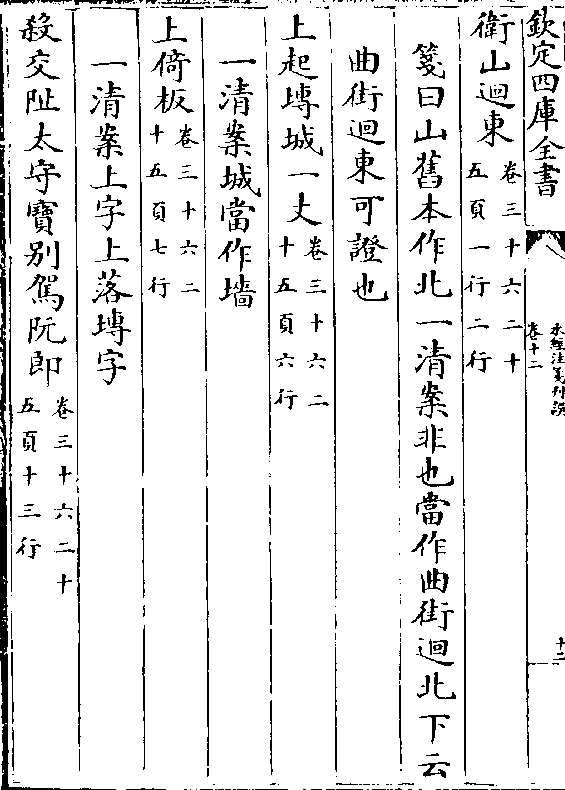 欽定四庫全書
水經注箋刋誤
卷十二
十二
衛山迴東卷三十六二十五頁一行二行
箋曰山舊本作北一清案非也當作曲街迴北下云
曲街迴東可證也
上起塼城一丈卷三十六二十五頁六行
一清案城當作墻
上倚板卷三十六二十五頁七行
一清案上字上落塼字
殺交阯太守寶别駕阮郎卷三十六二十五頁十三行